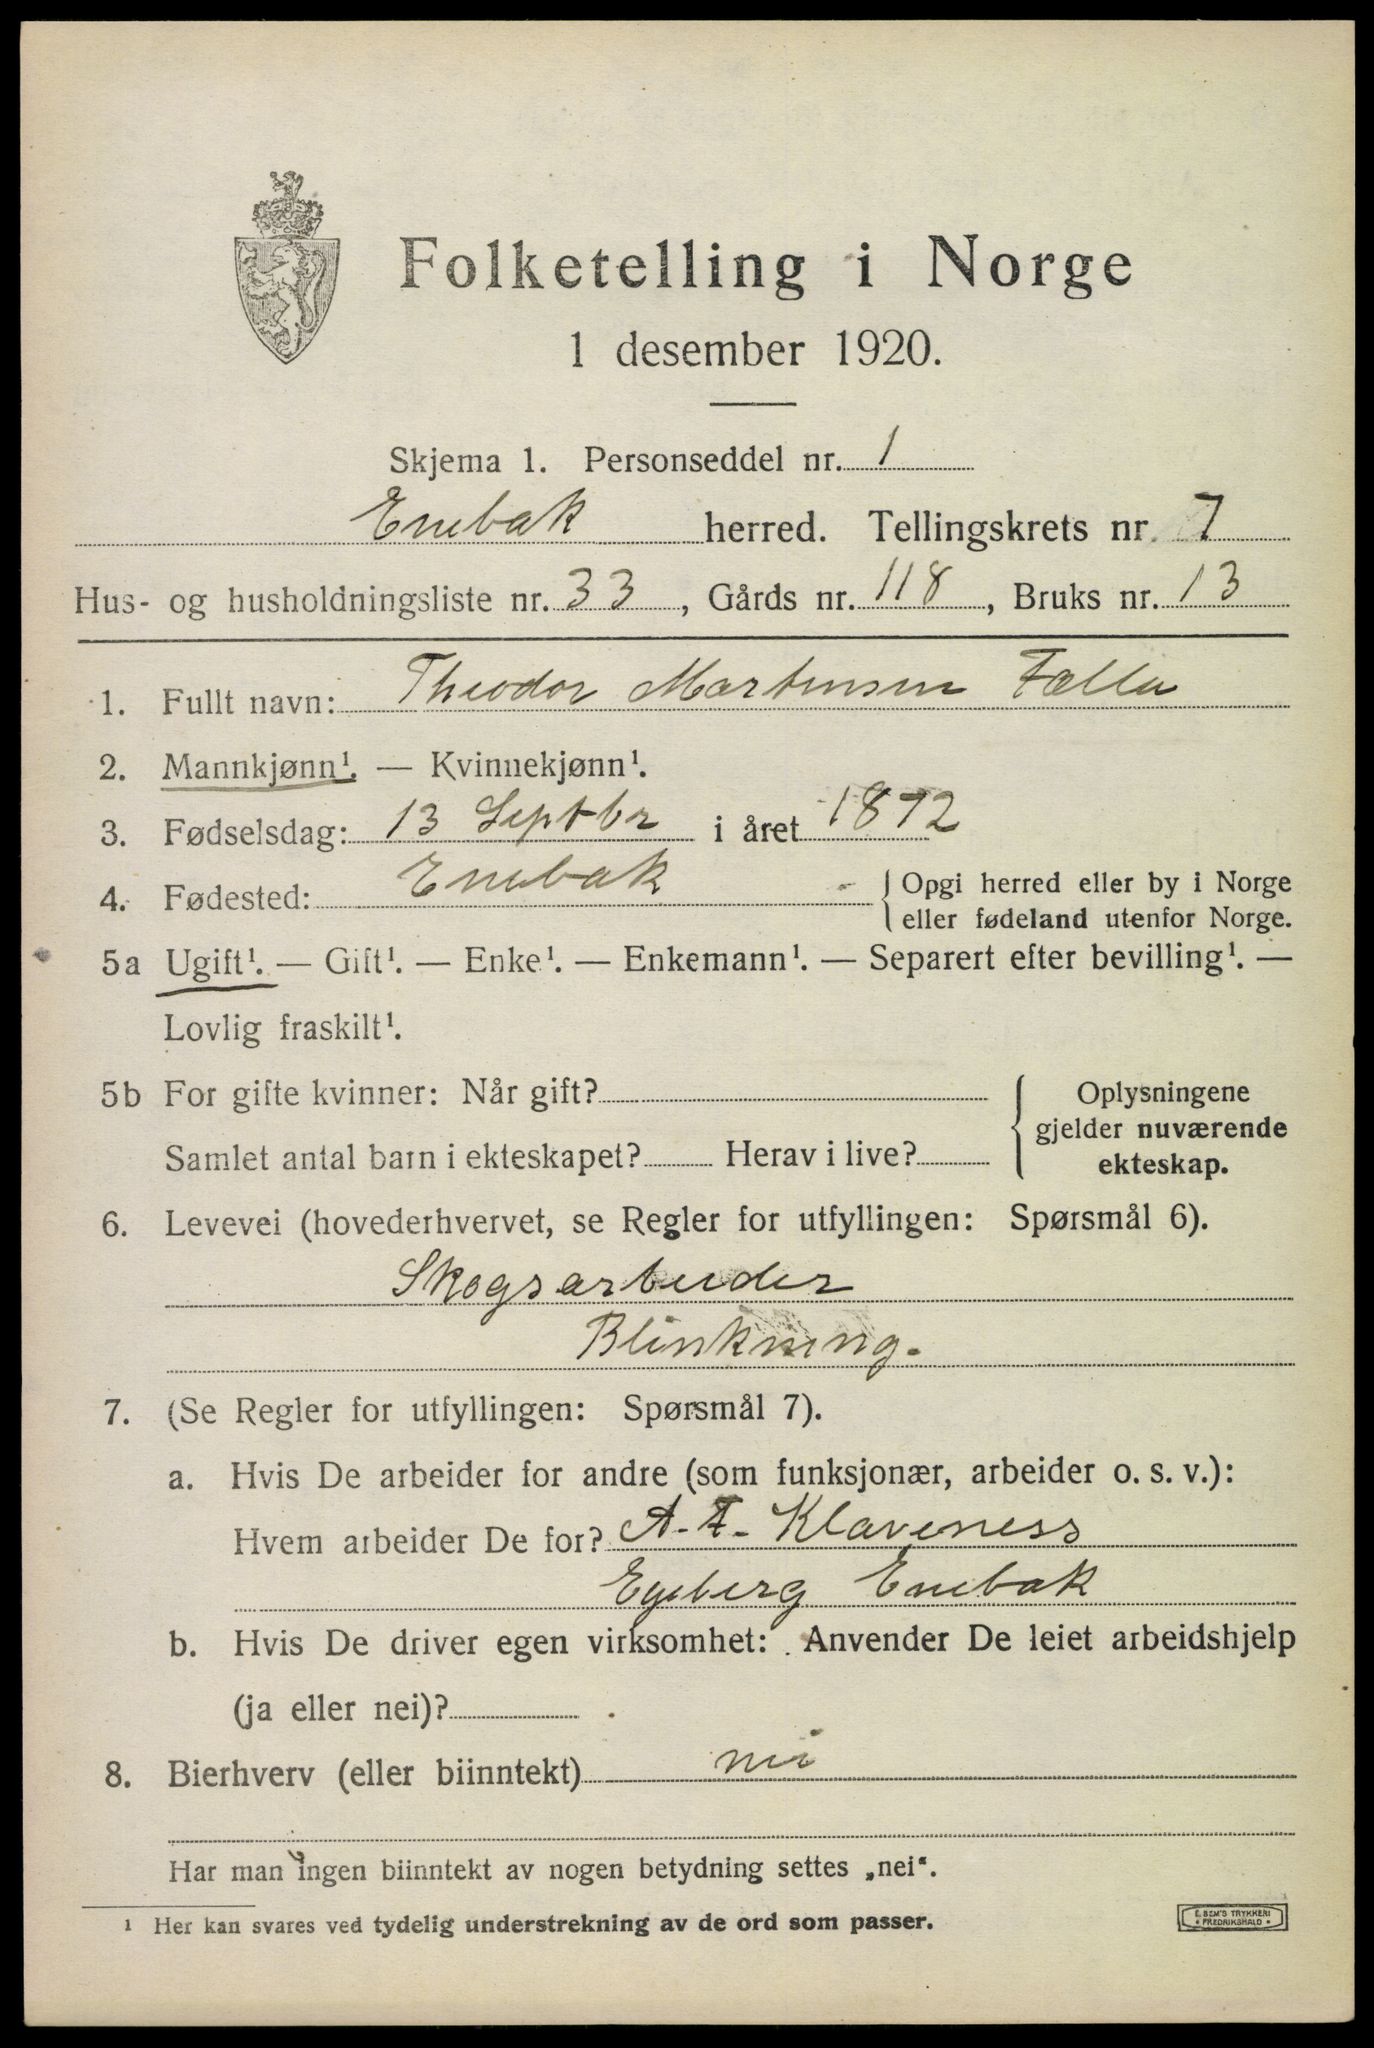 Folketelling i Norge
1 desember 1920.
Skjema 1. Personseddel nr. 1
Enebak herred. Tellingskrets nr. 7
Hus- og husholdningsliste nr. 33, Gårds nr. 118, Bruks nr. 13
1. Fullt navn: Theodor Martinsen Fælla
2. Mannkjønn¹. — Kvinnekjønn¹.
3. Fødselsdag: 13 Septbr i året 1872
4. Fødested: Enebak { Opgi herred eller by i Norge
eller fødeland utenfor Norge.
5a Ugift¹. — Gift¹. — Enke¹. — Enkemann¹. — Separert efter bevilling¹. —
Lovlig fraskilt¹.
5b For gifte kvinner: Når gift? { Oplysningene
gjelder nuværende
Samlet antal barn i ekteskapet? Herav i live? ekteskap.
6. Levevei (hovederhvervet, se Regler for utfyllingen: Spørsmål 6).
Skogsarbeider
Blinkning.
7. (Se Regler for utfyllingen: Spørsmål 7).
a. Hvis De arbeider for andre (som funksjonær, arbeider o. s. v.):
Hvem arbeider De for? A. F. Klaveness
Egeberg Enebak
b. Hvis De driver egen virksomhet: Anvender De leiet arbeidshjelp
(ja eller nei)?
8. Bierhverv (eller biinntekt) nei
Har man ingen biinntekt av nogen betydning settes „nei“.
¹ Her kan svares ved tydelig understrekning av de ord som passer.
E. SEM'S TRYKKERI
• FREDRIKSHALD •